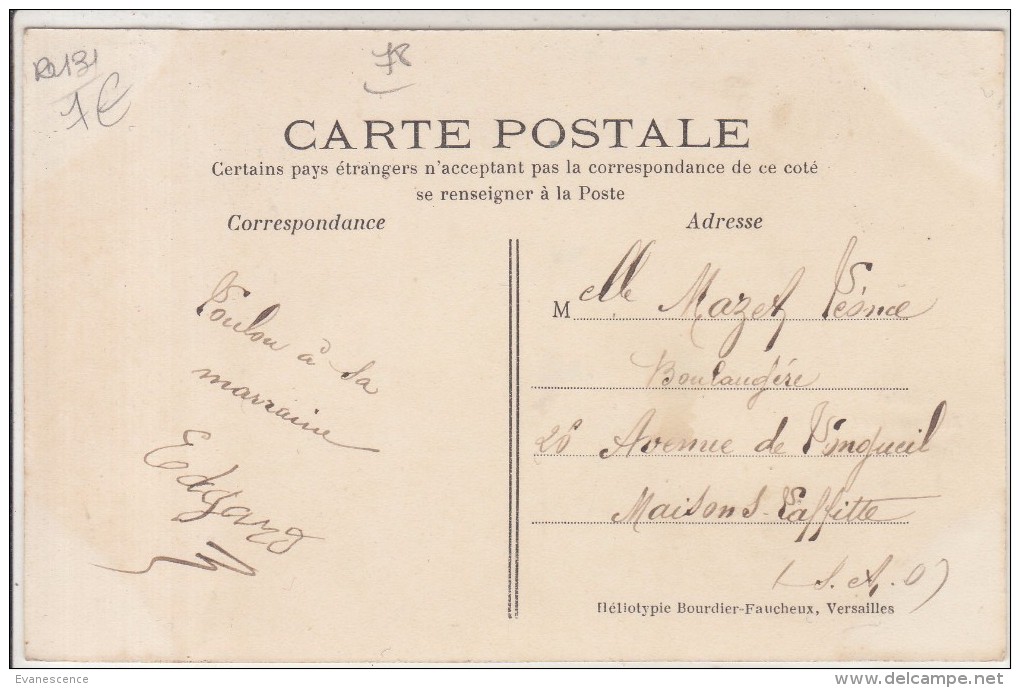 Ro131
1€
78
CARTE POSTALE
Certains pays étrangers n'acceptant pas la correspondance de ce coté
se renseigner à la Poste
Correspondance
Adresse
Loulou à sa
marraine
Edgard
Melle Mazet
Boulangère
26 Avenue de Longueil
Maisons-Laffitte
(S. & O)
Héliotypie Bourdier-Faucheux, Versailles
Evanescence
www.delcampe.net